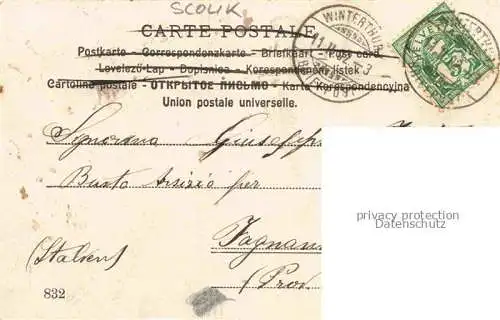 SCOUK
CARTE POSTALE
Postkarte - Correspondenzkarte - Briefkaart - Post card
Levelező-Lap - Dopisnica - Korespondenční lístek
Cartolina postale - ОТКРЫТОЕ ПИСЬМО - Karta Korespondencyjna
Union postale universelle.
WINTERTHUR
HELVETIA
WINTERTHUR
Signorina
Busto Arsizio per
privacy protection
Datenschutz
Fagnan
(Italien)
(Prov.
832